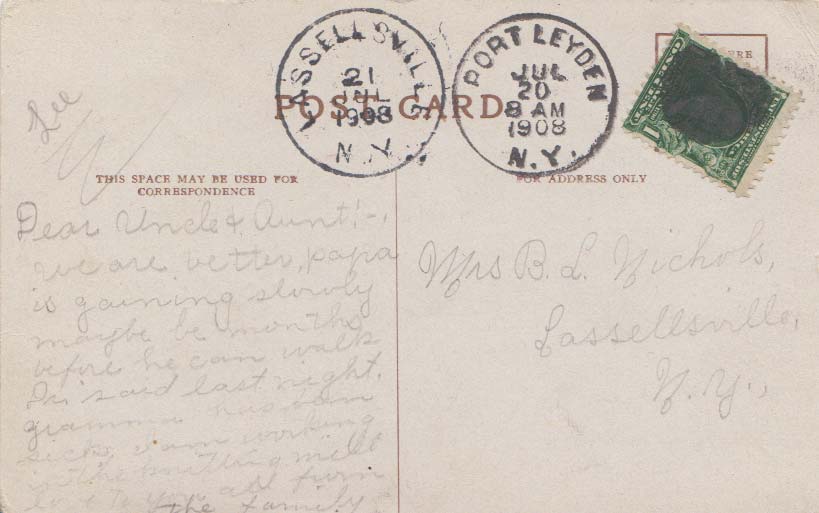 LASSELLSVILLE
21
JUL
1908
N.Y.
PORT LEYDEN
JUL
20
8 AM
1908
N.Y.
POST CARD
Lee
THIS SPACE MAY BE USED FOR
CORRESPONDENCE
FOR ADDRESS ONLY
Dear Uncle & Aunt:-,
we are better, papa
is gaining slowly
maybe be months
before he can walk
Dr. said last night.
gramma has been
sick, I am working
in the knitting mill
love to you all from
the family
Mrs B. L. Nichols,
Lassellsville,
N.Y.,